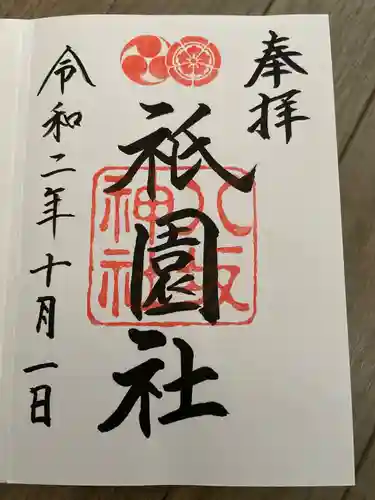 奉拝
八坂
神社
祇園社
令和二年十月一日